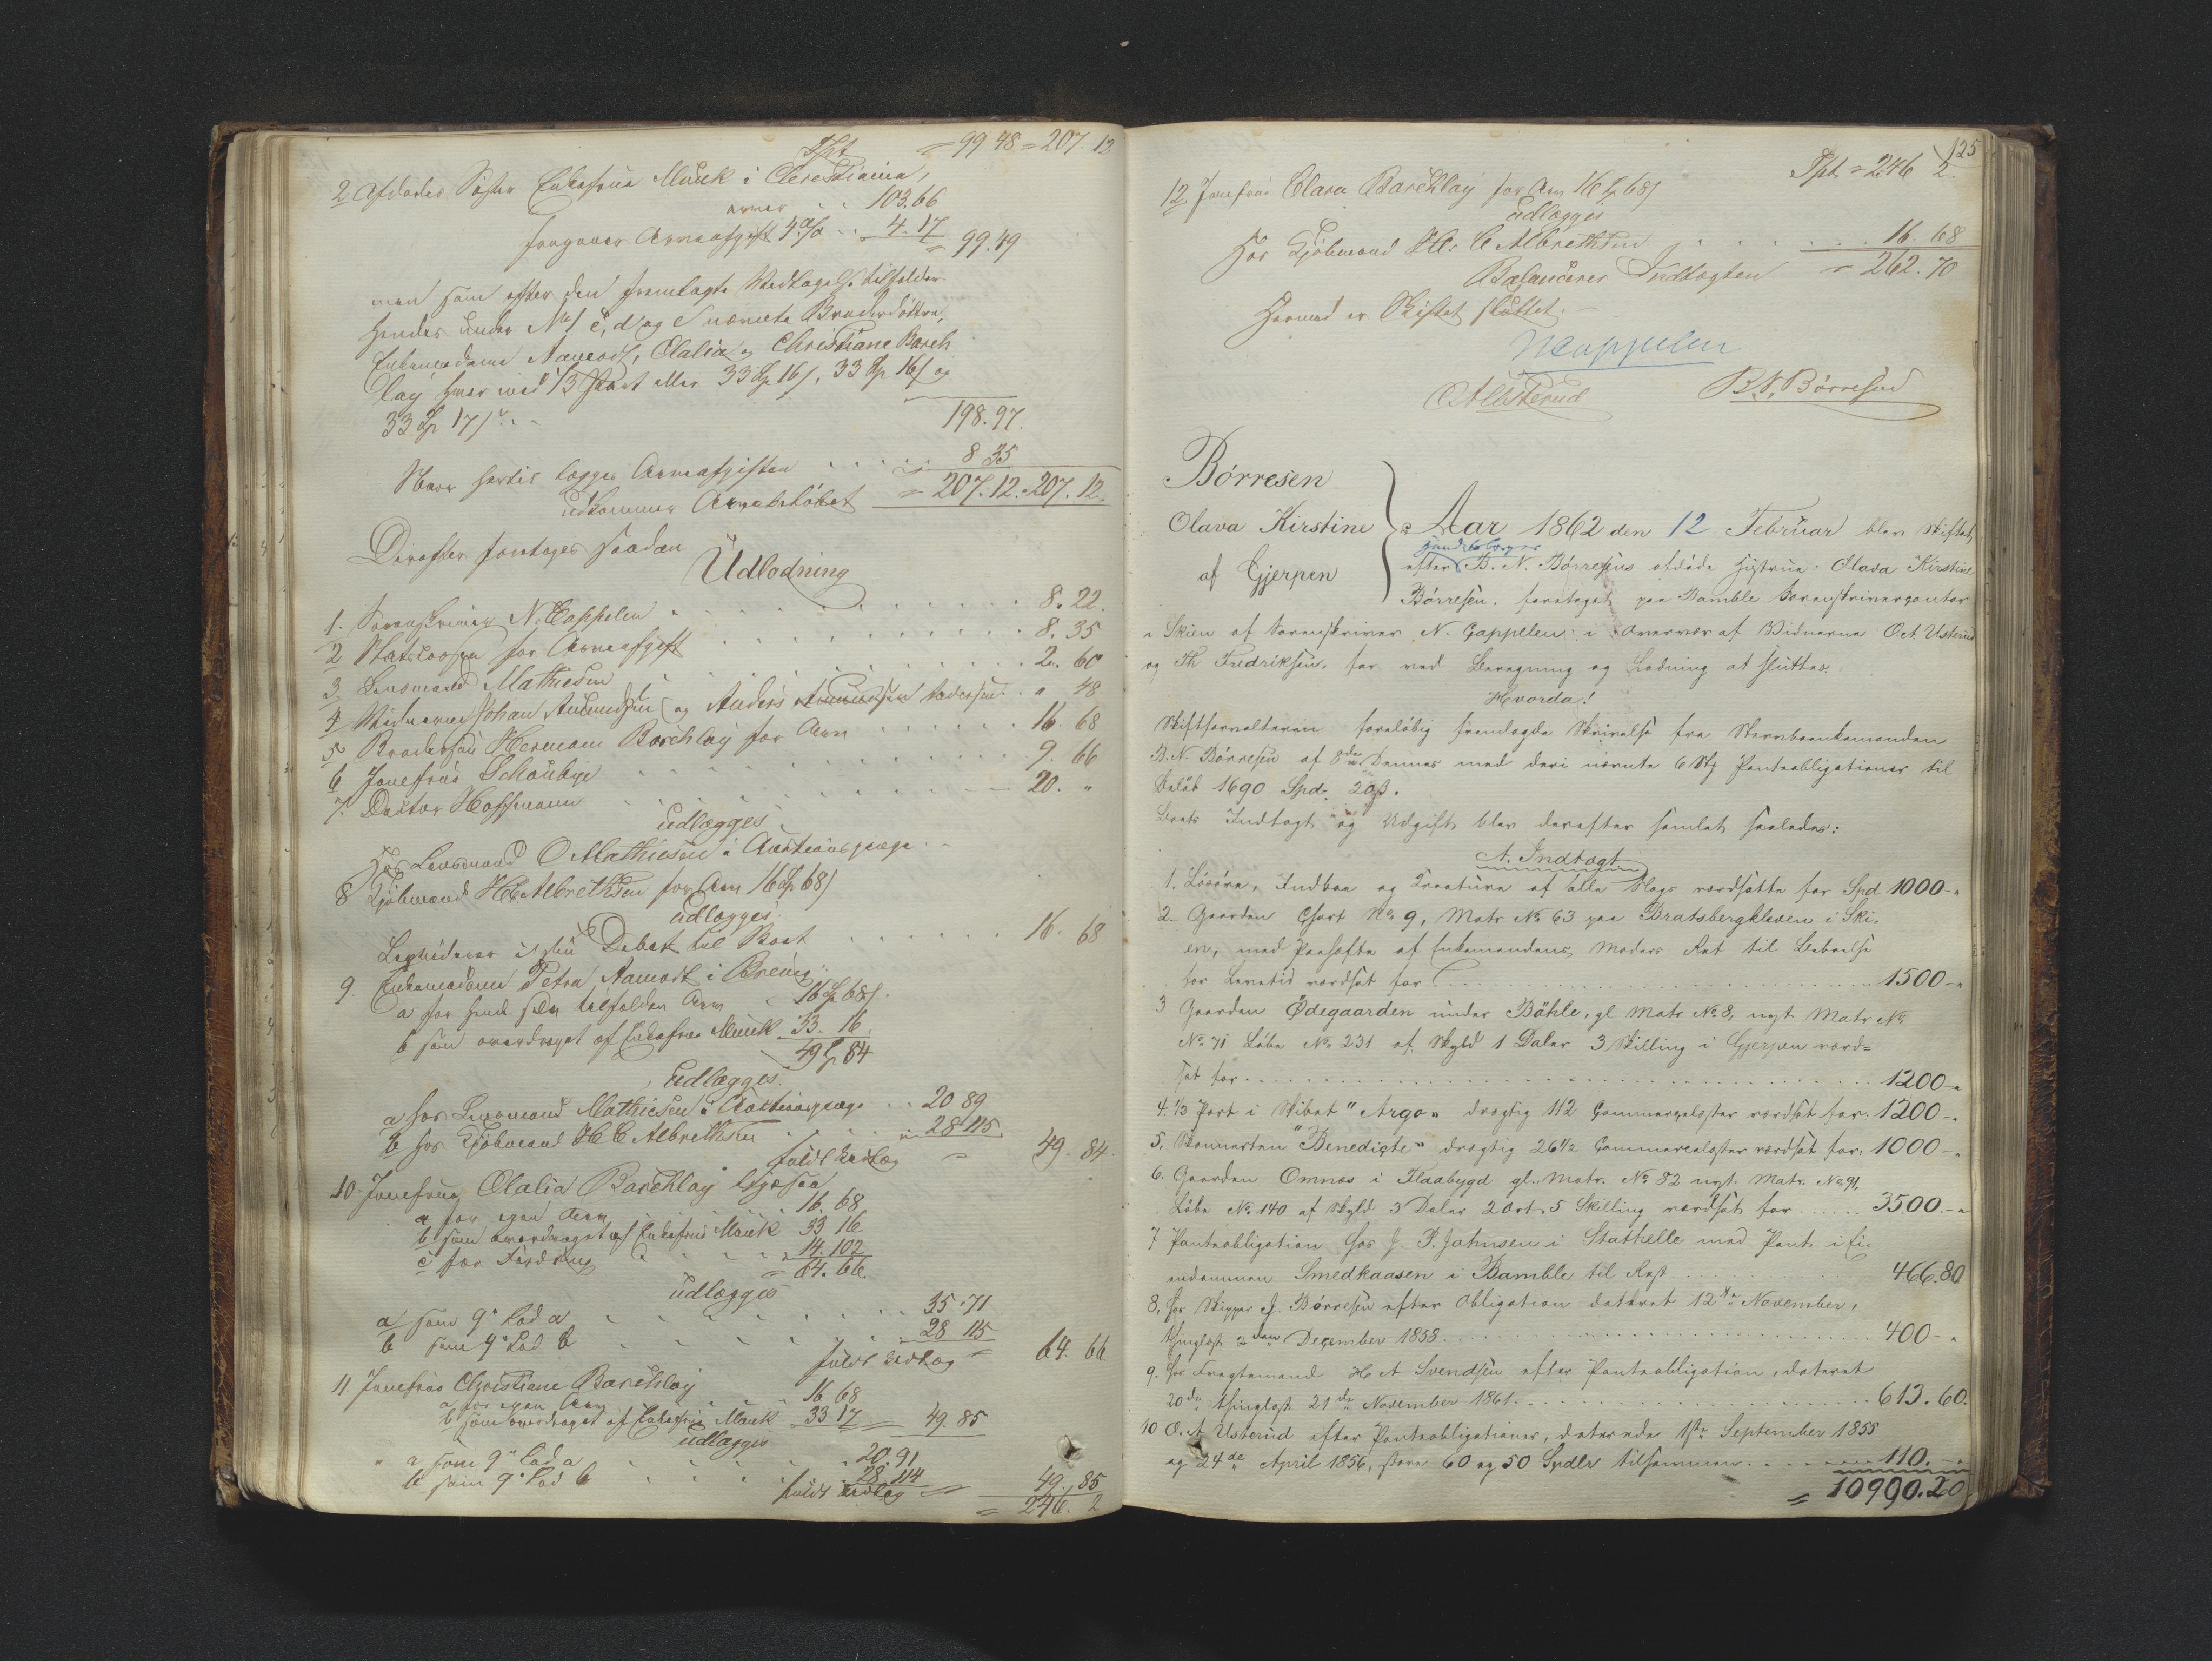 Tpt = 99 48 = 207. 12
2 Afdødes Søster Enkefrue Munk i Christiania,
arver . . 103.66
fragaaer Arveafgift 4% . . 4. 17
= 99.49
men som efter den fremlagte Vedtagelse tilfalder
hendes under No 1 c, d og e nævnte Broderdøttre,
Enkemadame Aamodt, Olalia og Christiane Barch
lay hver med 1/3 Part eller 33 Sp 16 s, 33 Sp 16 s og
33 Sp 17 s . .
198.97.
Naar hertil lægges Arveafgiften . . . . 8 35
udkommer Arvebeløbet = 207. 12. = 207. 12.
Derefter foretages saadan
Udlodning
1. Sorenskriver N. Cappelen . . . . 8. 22.
2 Statscassen for Arveafgift . . . . 8. 35
3 Lensmand Mathiesen . . . . 2. 60
4 Vidnerne Johan Amundsen og Anders Amundsen Pedersen . " 48
5 Brodersøn Herman Barchlay for Arv . . . . 16. 68
6 Jomfrue Schoubye . . . . 9. 66
7. Doctor Hoffmann . . . . 20. "
udlægges
Hos Lensmand O Mathiesen i Auctionspenge . -
8 Kjøbmand H C Albrethsen for Arv 16 Sp 68 s
udlægges
Liqvideres i sin Debet til Boet . . . . 16. 68
9. Enkemadame Petra Aamodt i Brevig
a for hende selv tilfalden Arv . 16 Sp 68 s.
b som overdraget af Enkefrue Munk 33. 16.
49 Sp 84
Udlægges
a hos Lensmand Mathiesen i Auctionspenge . . 20 89
b hos Kjøbmand H C Albrethsen . . . 28 115
fuldt Udlæg = 49. 84.
10. Jomfrue Olalia Barchlay ligesaa
a for egen Arv . . . . 16. 68
b som overdraget af Enkefrue Munk 33 16
c for Fordring . . . . 14. 102
= 64. 66.
udlægges
a som 9" Lod a . . . . 35. 71
b som 9" Lod b . . . . 28 115
fuldt Udlæg = 64. 66
11. Jomfrue Christiane Barchlay
a for egen Arv . . 16 68
b som overdraget af Enkefrue Munk 33 17 = 49. 85
udlægges
" a som 9" Lod a . . . 20. 91
b som 9" Lod b . . . 28. 114
fuldt Udlæg = 49. 85
= 246. 2
125
Tpt = 246 2.
12. Jomfrue Clara Barchlay for Arv 16 Sp 68 s
udlægges
Hos Kjøbmand H. C Albrethsen . . . . 16. 68
Balancerer Indtægten = 262. 70
Hermed er Skiftet sluttet. -
NCappelen
OAUsterud B. N. Børresen
Børresen
Olava Kirstine
af Gjerpen
Aar 1862 den 12 Februar blev Skiftet
efter B. N. Børresens afdøde Hustrue Olava Kirstine
Børresen. foretaget paa Bamble Sorenskrivercontor
i Skien af Sorenskriver N. Cappelen i Overvær af Vidnerne O. A. Usterud
og Th Fredriksen, for ved Beregning og Lodning at sluttes.
Hvorda!
Skifteforvalteren foreløbig fremlagde Skrivelse fra Stervboenkemanden
B. N. Børresen af 8de Dennes med deri nævnte 6 Stk Panteobligationer til
Beløb 1690 Spd. 20 s.
Boets Indtægt og Udgift blev derefter samlet saaledes:
A. Indtægt
1. Løsøre, Indboe og Creature af alle Slags værdsatte for Spd 1000 - "
2. Gaarden Chart No 9, Matr No 63 paa Bratsbergkleven i Ski-
en, med Paahæfte af Enkemandens Moders Ret til Beboelse
for Levetid værdsat for . . . . 1500 - "
3 Gaarden Ødegaarden under Bøhle, gl Matr No 8, nyt Matr No
No 71 Løbe No 231 af Skyld 1 Daler 3 Skilling i Gjerpen værd=
sat for . . . . 1200 - "
4. 1/3 Part i Skibet "Argo" drægtig 112 Commercelæster værdsat for . 1200 - "
5. Skonnerten "Benedicte" drægtig 26 1/2 Commercelæster værdsat for: 1000 - "
6. Gaarden Omnæs i Flaabygd gl. Matr. No 32 nyt. Matr. No 91,
Løbe No 140 af Skyld 3 Daler 2 Ort 5 Skilling værdsat for . . . 3500. - "
7 Panteobligation hos J. P. Jahnsen i Stathelle med Pant i Ei-
endommen Smedkaasen i Bamble til Rest . . . . 466.80
8, hos Skipper J. Børresen efter Obligation dateret 12te November,
thinglæst 2den December 1858 . . . . 400 - "
9. hos Fragtemand H A Svendsen efter Panteobligation, dateret
20de thinglæst 21de November 1861 . . . . 613. 60.
10 O. A Usterud efter Panteobligationer, daterede 1ste September 1855
og 24de April 1856, store 60 og 50 Spdlr tilsammen . . . . 110. - "
= 10990.20